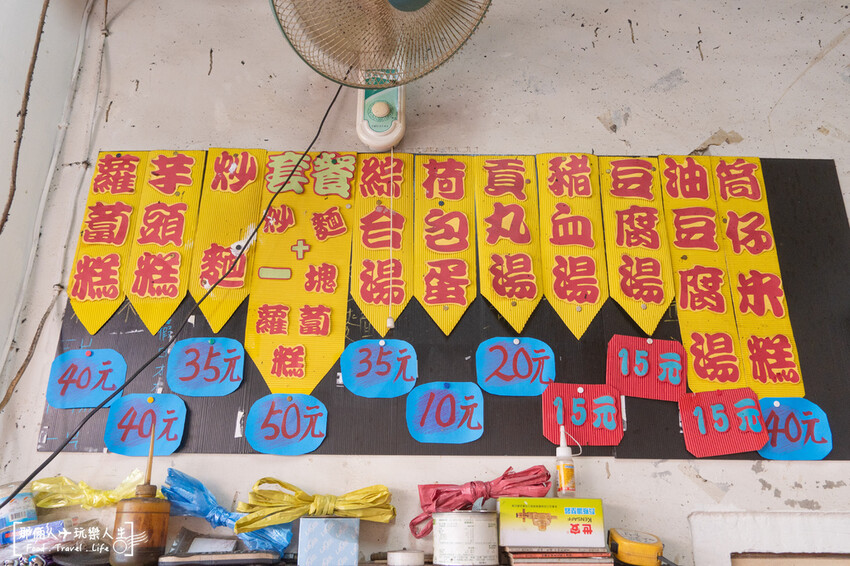 蘿蔔糕
芋頭糕
炒麵
套餐
炒麵
+
一塊
蘿蔔
糕
綜合湯
荷包蛋
貢丸湯
豬血湯
豆腐湯
油豆腐湯
筒仔米糕
40元
40元
35元
50元
35元
10元
20元
15元
15元
15元
40元
世安
那個人 玩樂人生
Food . Travel . Life